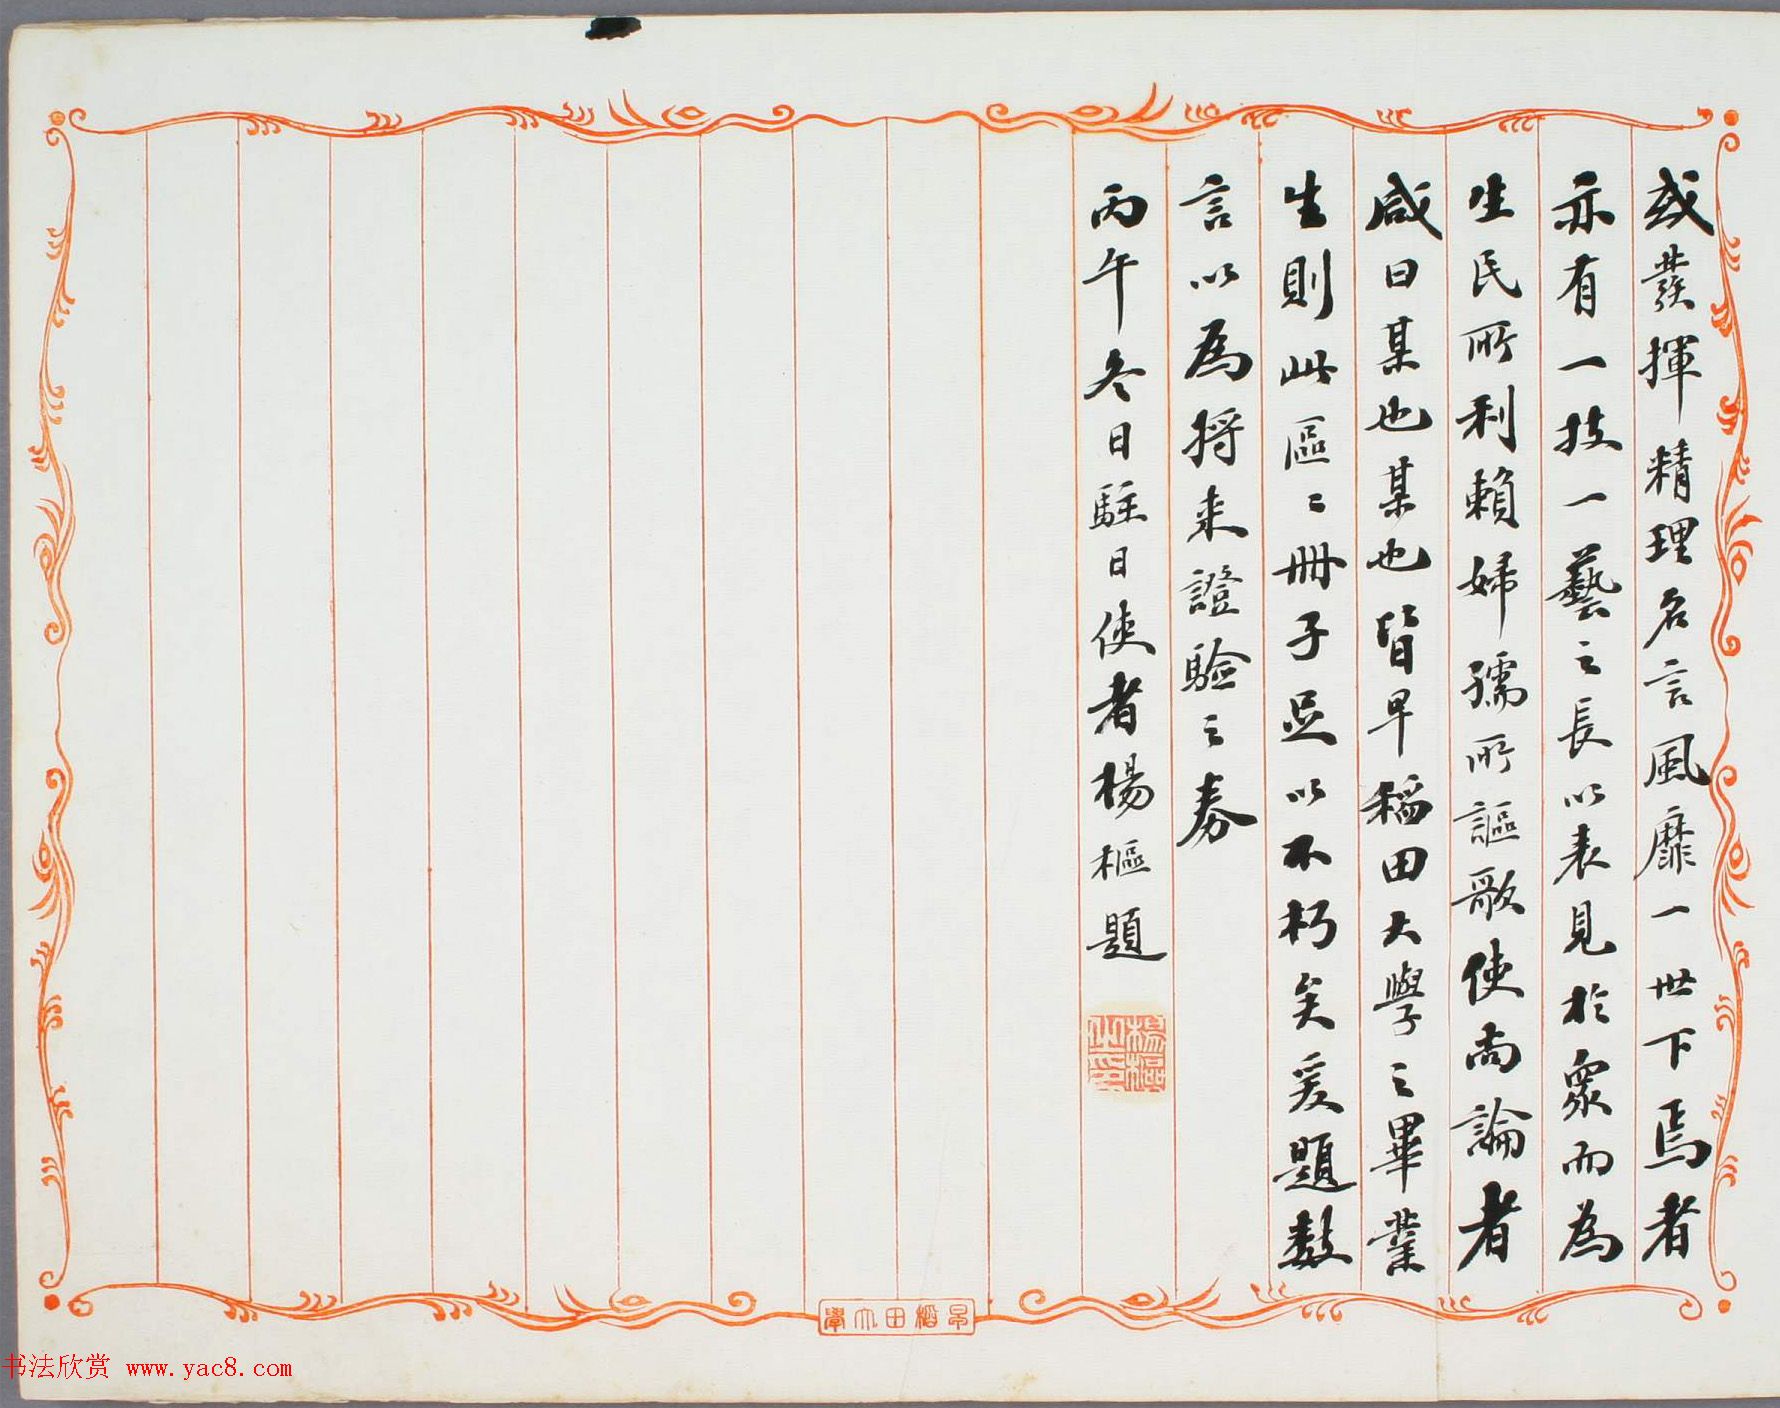 或發揮精理名言風靡一世下焉者
亦有一技一藝之長以表見於眾而為
生民所利賴婦孺所謳歌使尚論者
咸曰某也某也皆早稻田大學之畢業
生則此區〻冊子足以不朽矣爰題數
言以為將来證驗之券
丙午冬日駐日使者楊樞題
楊樞之印
早稻田大學
书法欣赏 www.yac8.com